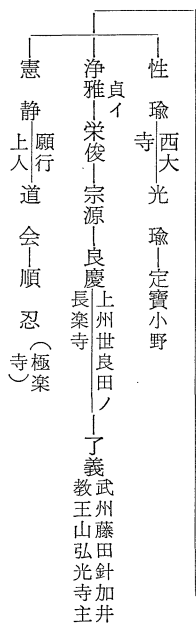 性瑜西大寺光瑜定寶小野
浄雅貞イ栄俊宗源良慶上州世良田ノ長楽寺了義武州藤田針加井教王山弘光寺主
憲静願行上人道会順忍(極楽寺)